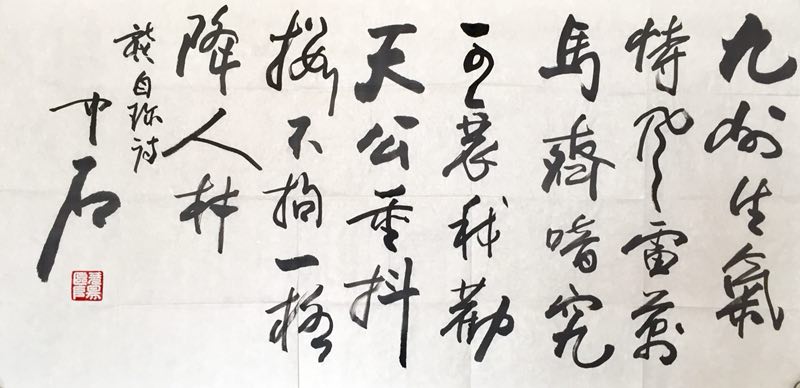 九州生氣
恃風雷萬
馬齊喑究
可哀我勸
天公重抖
擻不拘一格
降人材
龔自珍詩
中石